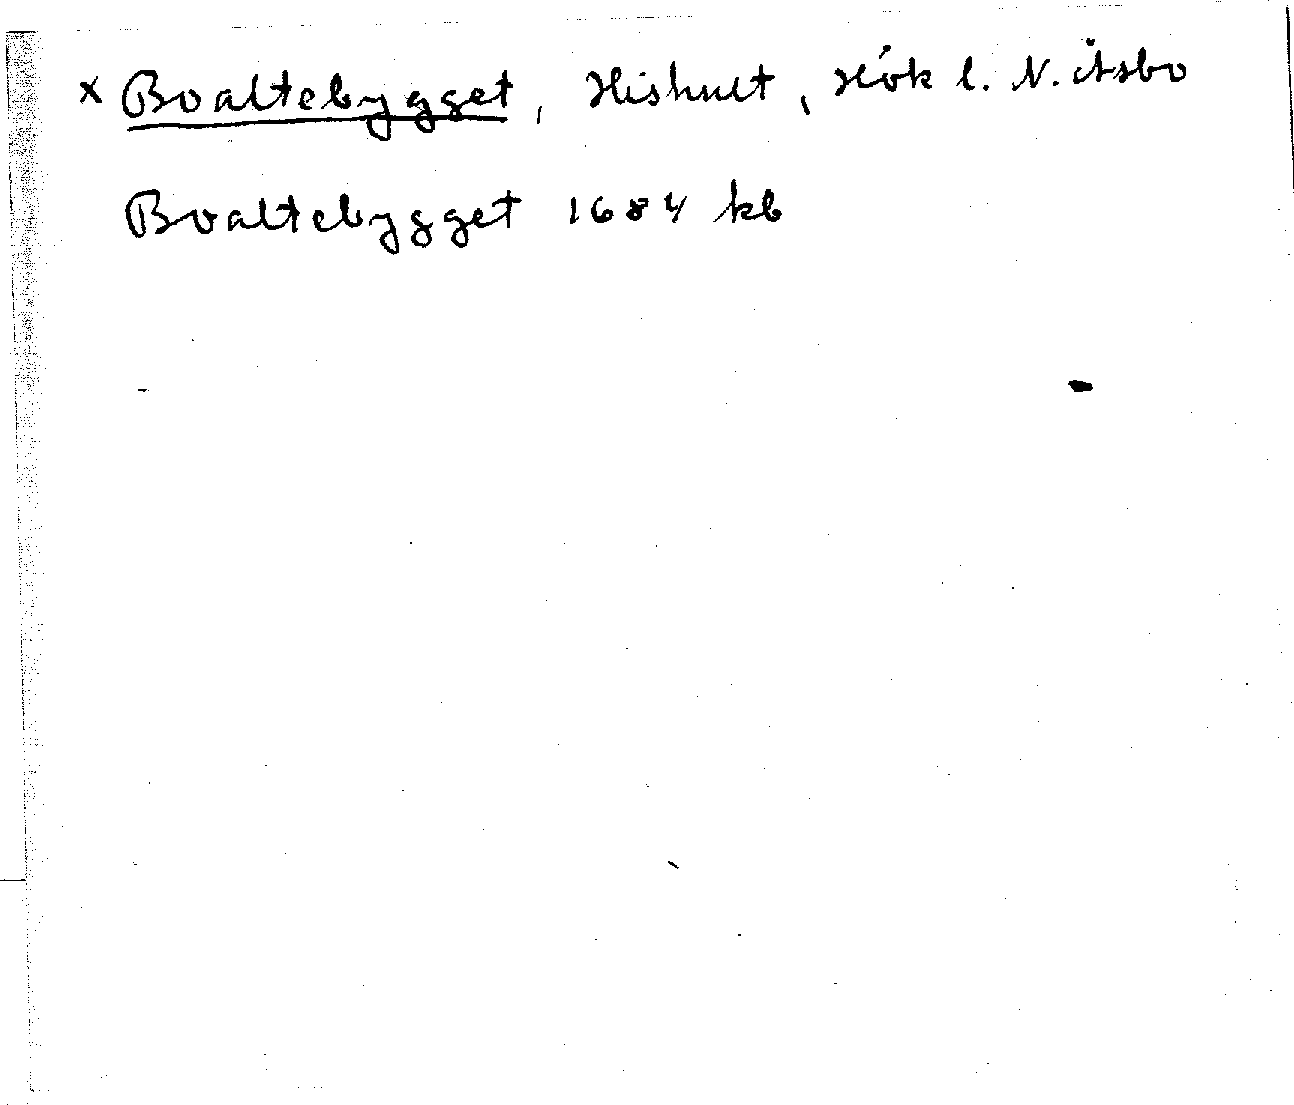 x Boaltebygget, Hishult, Hök l. N. Åsbo
Boaltebygget 1684 kb